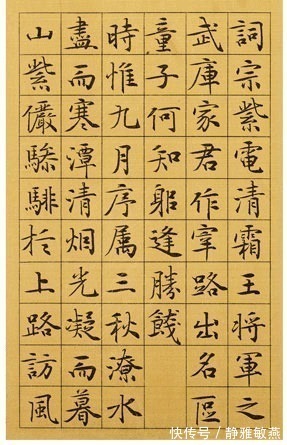 詞宗紫電清霜王將軍之
武庫家君作宰路出名區
童子何知躬逢勝餞
時惟九月序属三秋潦水
盡而寒潭清烟光凝而暮
山紫儼驂騑於上路訪風
快传号/静雅敏燕